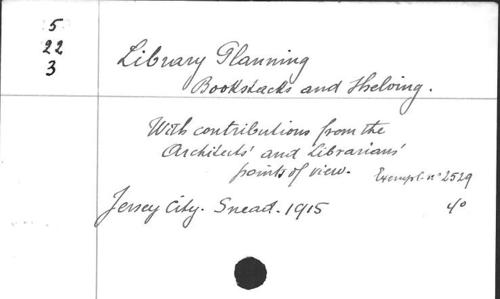 5
22
3
Library Planning
Bookstacks and Shelving.
With contributions from the
Architects' and Librarians'
points of view.
Exempl. n° 2529
Jersey City. Snead. 1915
4°